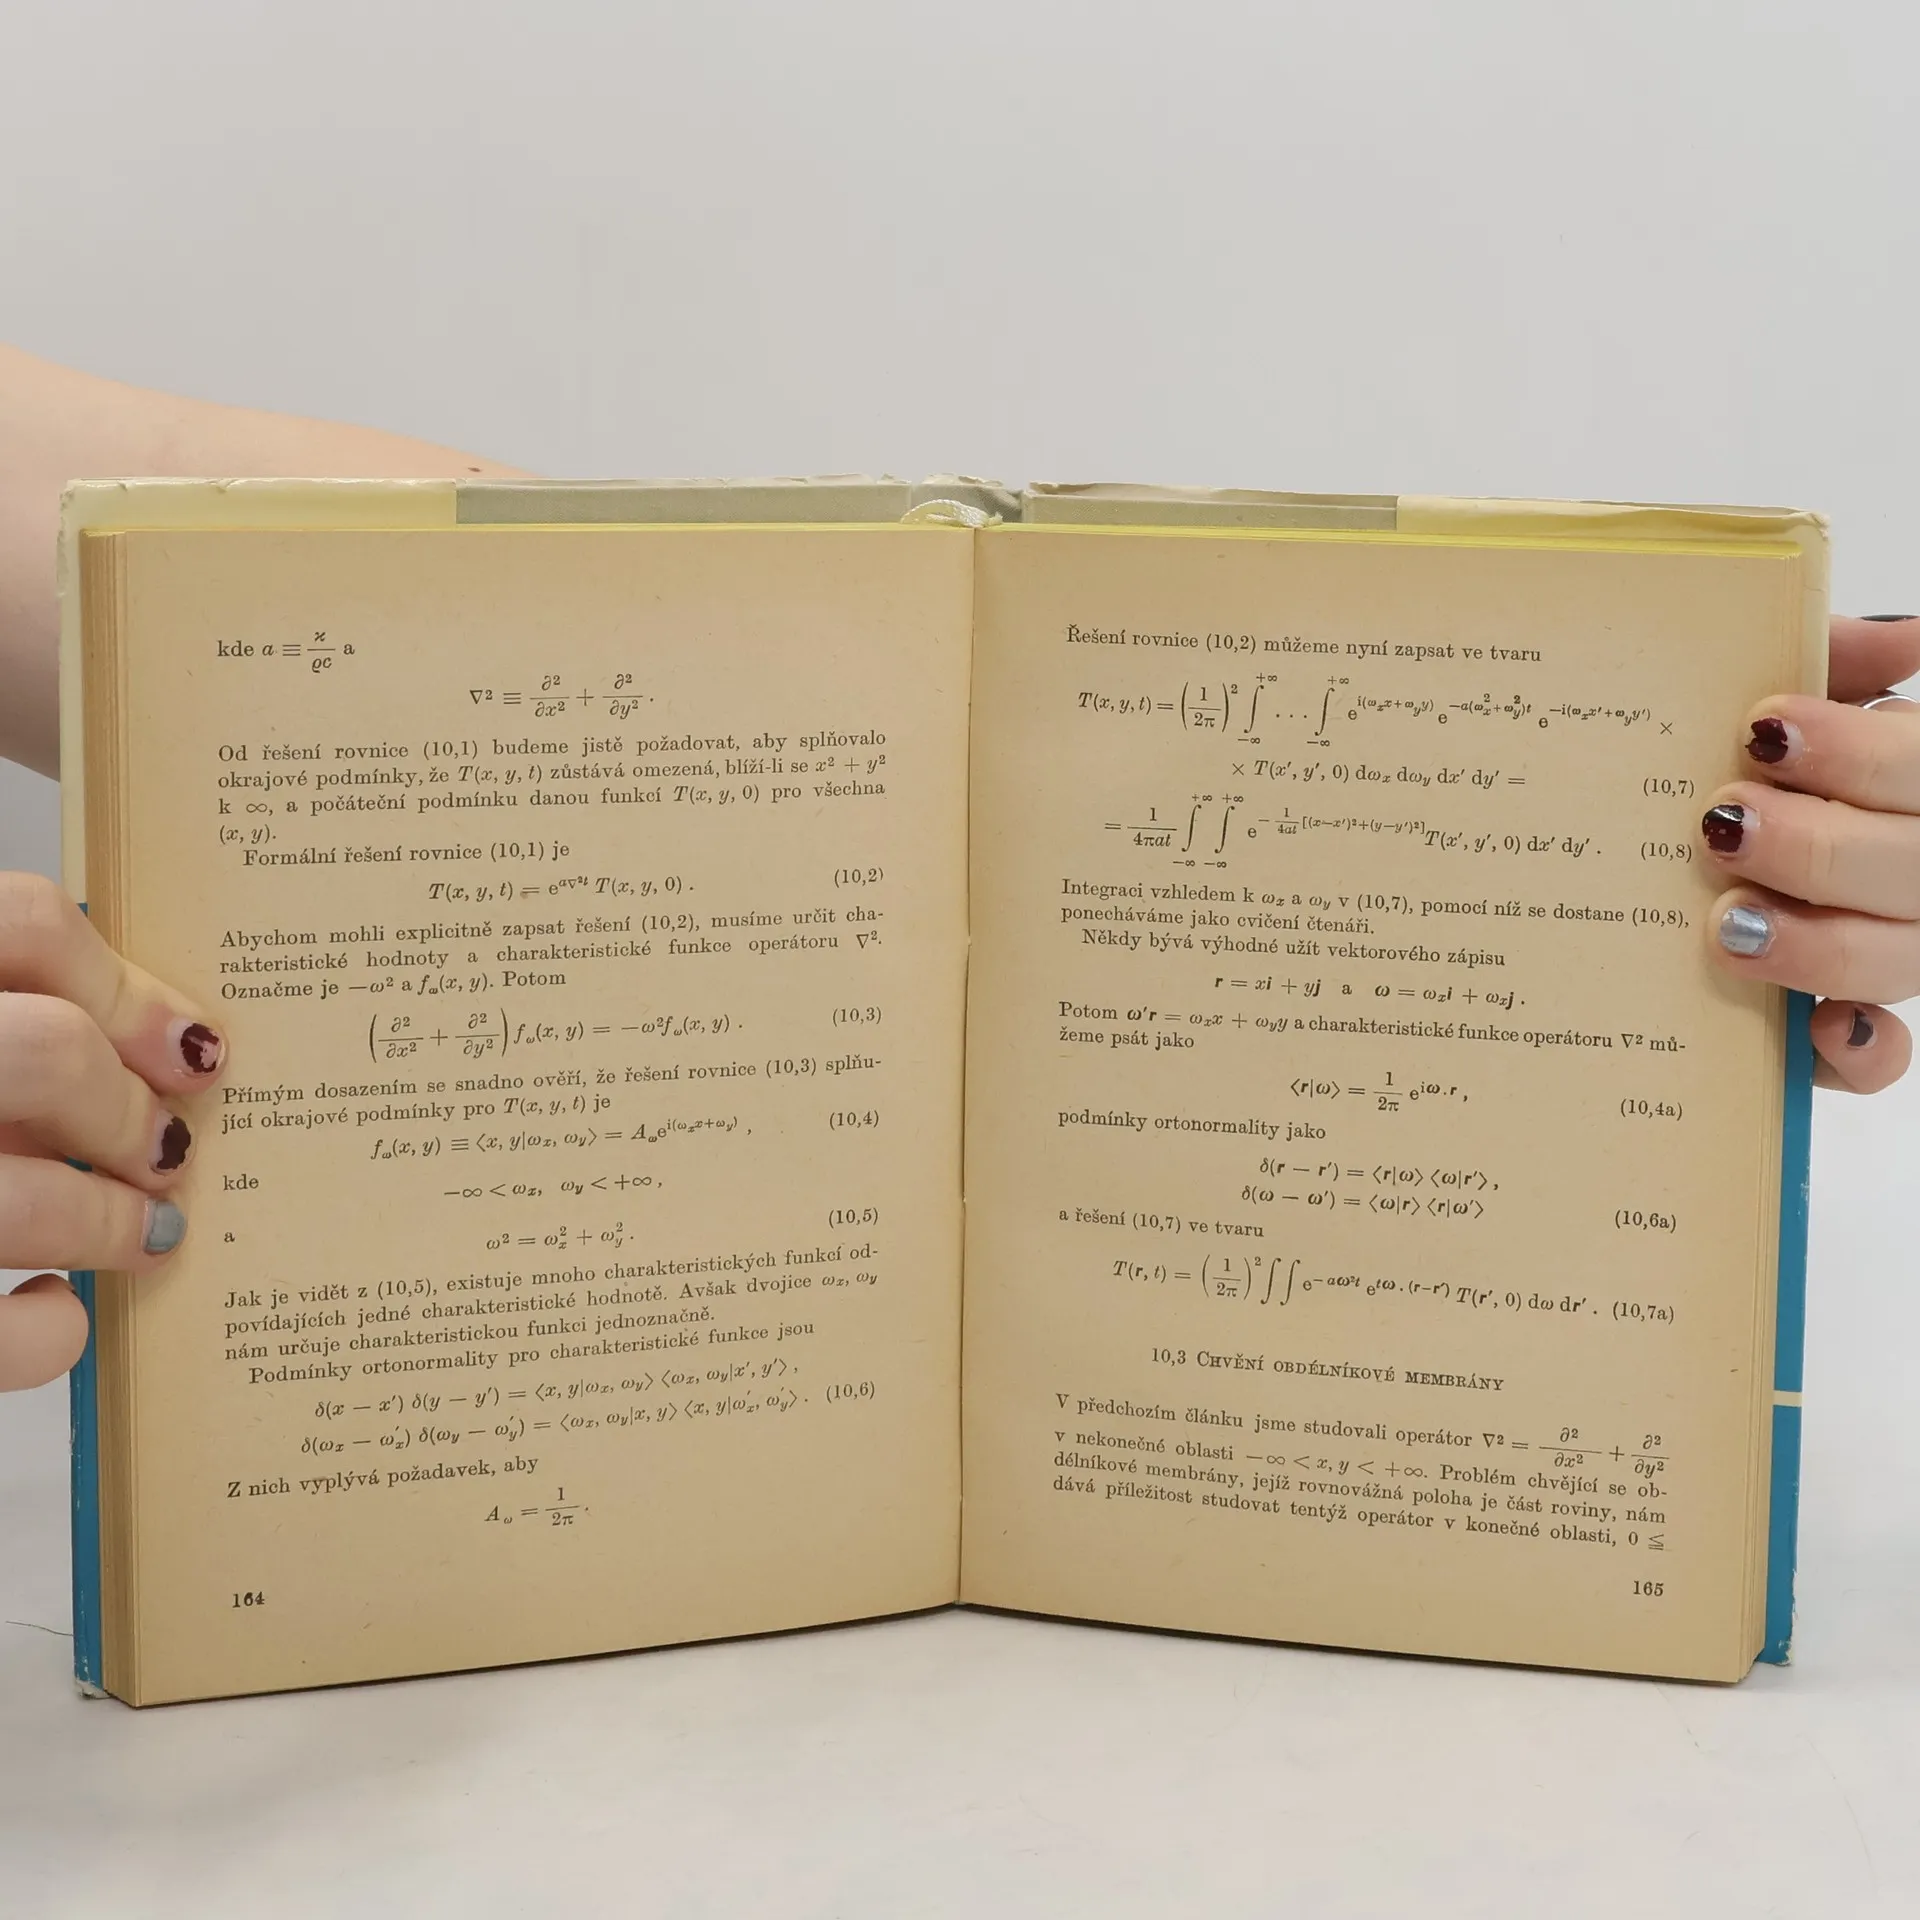 kde a ≡ ϰ/ϱc a
∇² ≡ ∂²/∂x² + ∂²/∂y² .
Od řešení rovnice (10,1) budeme jistě požadovat, aby splňovalo
okrajové podmínky, že T(x, y, t) zůstává omezená, blíží-li se x² + y²
k ∞, a počáteční podmínku danou funkcí T(x, y, 0) pro všechna
(x, y).
Formální řešení rovnice (10,1) je
T(x, y, t) = e^{a∇²t} T(x, y, 0) . (10,2)
Abychom mohli explicitně zapsat řešení (10,2), musíme určit cha-
rakteristické hodnoty a charakteristické funkce operátoru ∇².
Označme je —ω² a f_ω(x, y). Potom
(∂²/∂x² + ∂²/∂y²) f_ω(x, y) = —ω²f_ω(x, y) . (10,3)
Přímým dosazením se snadno ověří, že řešení rovnice (10,3) splňu-
jící okrajové podmínky pro T(x, y, t) je
f_ω(x, y) ≡ ⟨x, y|ω_x, ω_y⟩ = A_ω e^{i(ω_x x+ω_y)} , (10,4)
kde
—∞ < ω_x, ω_y < +∞ ,
a
ω² = ω_x² + ω_y² . (10,5)
Jak je vidět z (10,5), existuje mnoho charakteristických funkcí od-
povídajících jedné charakteristické hodnotě. Avšak dvojice ω_x, ω_y
nám určuje charakteristickou funkci jednoznačně.
Podmínky ortonormality pro charakteristické funkce jsou
δ(x — x′) δ(y — y′) = ⟨x, y|ω_x, ω_y⟩ ⟨ω_x, ω_y|x′, y′⟩ ,
δ(ω_x — ω_x′) δ(ω_y — ω_y′) = ⟨ω_x, ω_y|x, y⟩ ⟨x, y|ω_x′, ω_y′⟩ . (10,6)
Z nich vyplývá požadavek, aby
A_ω = 1/2π .
164
Řešení rovnice (10,2) můžeme nyní zapsat ve tvaru
T(x, y, t) = (1/2π)² ∫_{—∞}^{+∞} . . . ∫_{—∞}^{+∞} e^{i(ω_x x+ω_y y)} e^{—a(ω_x²+ω_y²)t} e^{—i(ω_x x′+ω_y y′)} ×
× T(x′, y′, 0) dω_x dω_y dx′ dy′ = (10,7)
= 1/4πat ∫_{—∞}^{+∞} ∫_{—∞}^{+∞} e^{— 1/4at [(x—x′)²+(y—y′)²]} T(x′, y′, 0) dx′ dy′ . (10,8)
Integraci vzhledem k ω_x a ω_y v (10,7), pomocí níž se dostane (10,8),
ponecháváme jako cvičení čtenáři.
Někdy bývá výhodné užít vektorového zápisu
r = xi + yj a ω = ω_x i + ω_x j .
Potom ω′r = ω_x x + ω_y y a charakteristické funkce operátoru ∇² mů-
žeme psát jako
⟨r|ω⟩ = 1/2π e^{iω.r} , (10,4a)
podmínky ortonormality jako
δ(r — r′) = ⟨r|ω⟩ ⟨ω|r′⟩ ,
δ(ω — ω′) = ⟨ω|r⟩ ⟨r|ω′⟩ (10,6a)
a řešení (10,7) ve tvaru
T(r, t) = (1/2π)² ∫∫ e^{—aω²t} e^{iω.(r—r′)} T(r′, 0) dω dr′ . (10,7a)
10,3 CHVĚNÍ OBDÉLNÍKOVÉ MEMBRÁNY
V předchozím článku jsme studovali operátor ∇² = ∂²/∂x² + ∂²/∂y²
v nekonečné oblasti —∞ < x, y < +∞. Problém chvějící se ob-
délníkové membrány, jejíž rovnovážná poloha je část roviny, nám
dává příležitost studovat tentýž operátor v konečné oblasti, 0 ≦
165